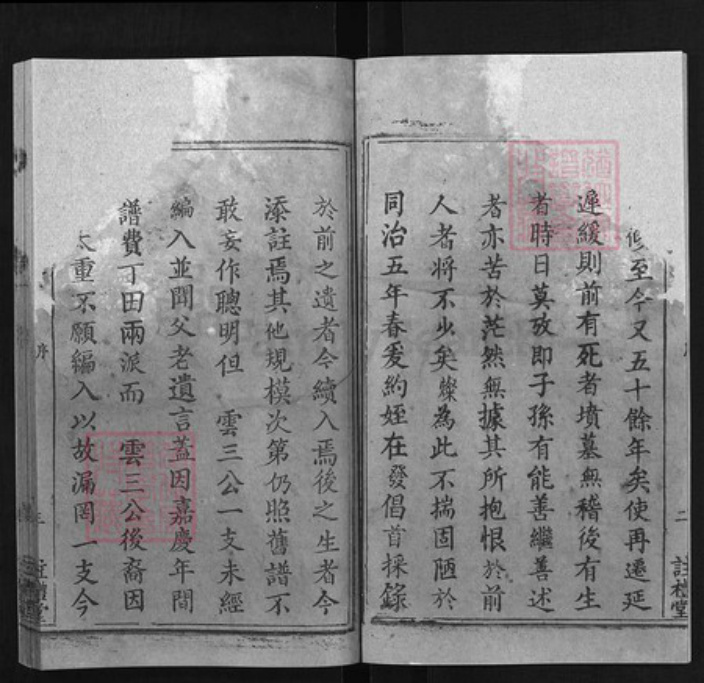 修至今又五十餘年矣使再遷延
遲緩則前有死者墳墓無稽後有生
者時日莫攷即子孫有能善繼善述
者亦苦於茫然無據其所抱恨於前
人者將不少矣燦為此不揣固陋於
同治五年春爰約姪在發倡首採錄
於前之遺者今續入焉後之生者今
添註焉其他規模次第仍照舊譜不
敢妄作聰明但 雲三公一支未經
編入並聞父老遺言蓋因嘉慶年間
譜費丁田兩派而 雲三公後裔因
太重不願編入以故漏罔一支今
序
二
序
三